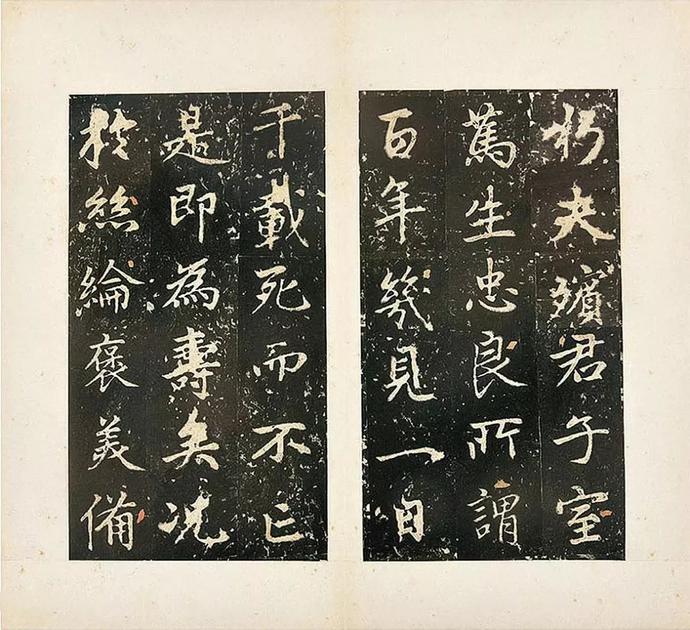 朽夫嬪君子室
篤生忠良所謂
百年幾見一日
千載死而不亡
是即為壽矣况
於絲綸褒美備